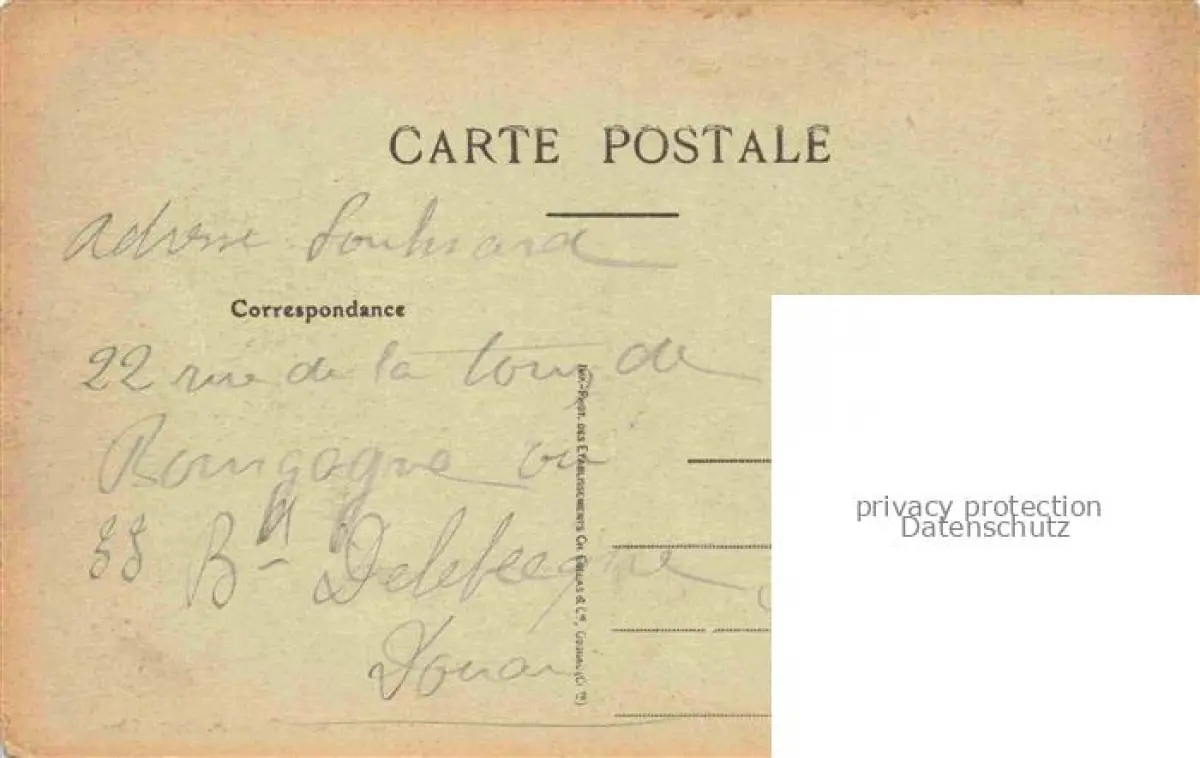 CARTE POSTALE
Adresse
Correspondance
22 rue de la tour de
Bourgogne ou
55 Bd Delebecque
Douai
IMP.-PHOT. DES ETABLISSEMENTS CH. & Cie,
privacy protection
Datenschutz